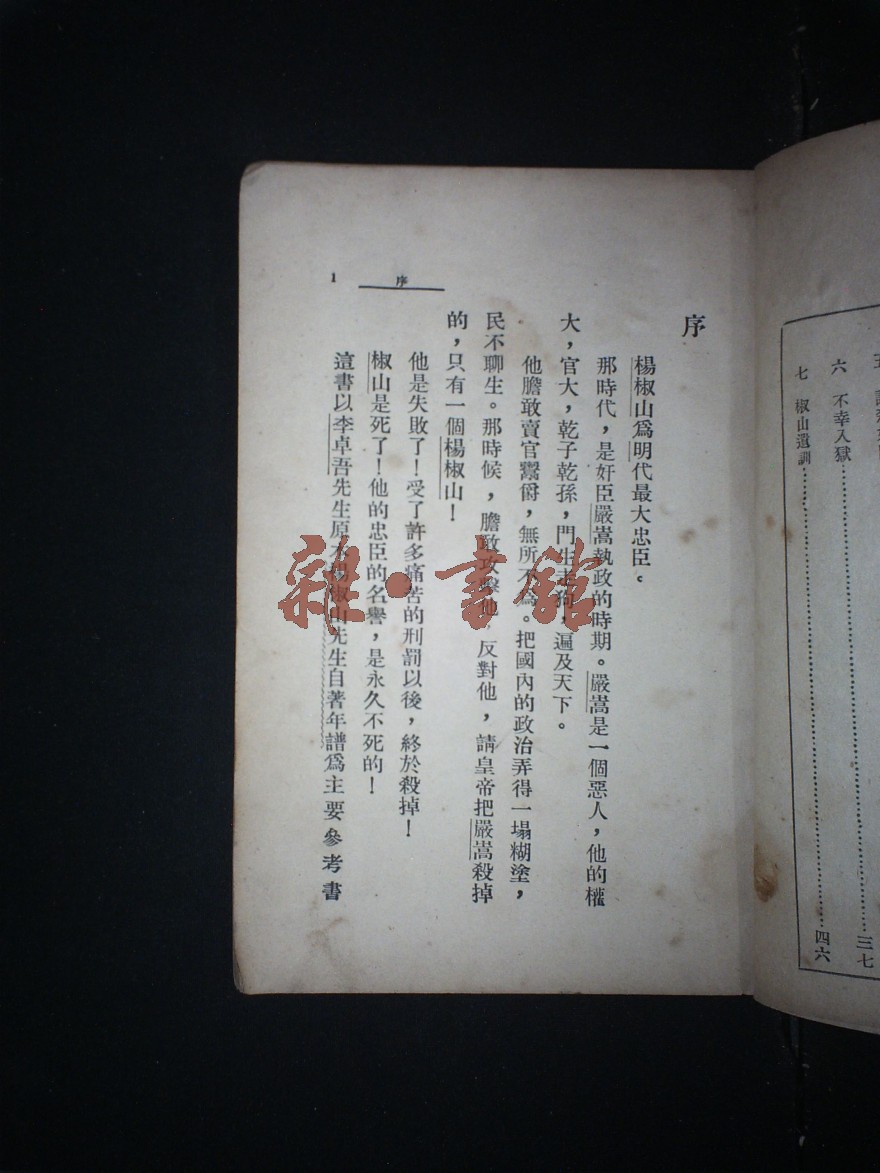 六　不幸入獄……三七
七　椒山遺訓……四六
序
楊椒山爲明代最大忠臣。
那時代，是奸臣嚴嵩執政的時期。嚴嵩是一個惡人，他的權
大，官大，乾子乾孫，門生走狗，遍及天下。
他膽敢賣官鬻爵，無所不爲。把國內的政治弄得一塌糊塗，
民不聊生。那時候，膽敢攻擊他，反對他，請皇帝把嚴嵩殺掉
的，只有一個楊椒山！
他是失敗了！受了許多痛苦的刑罰以後，終於殺掉！
椒山是死了！他的忠臣的名譽，是永久不死的！
這書以李卓吾先生原本楊椒山先生自著年譜爲主要參考書
序
1
雜·書館